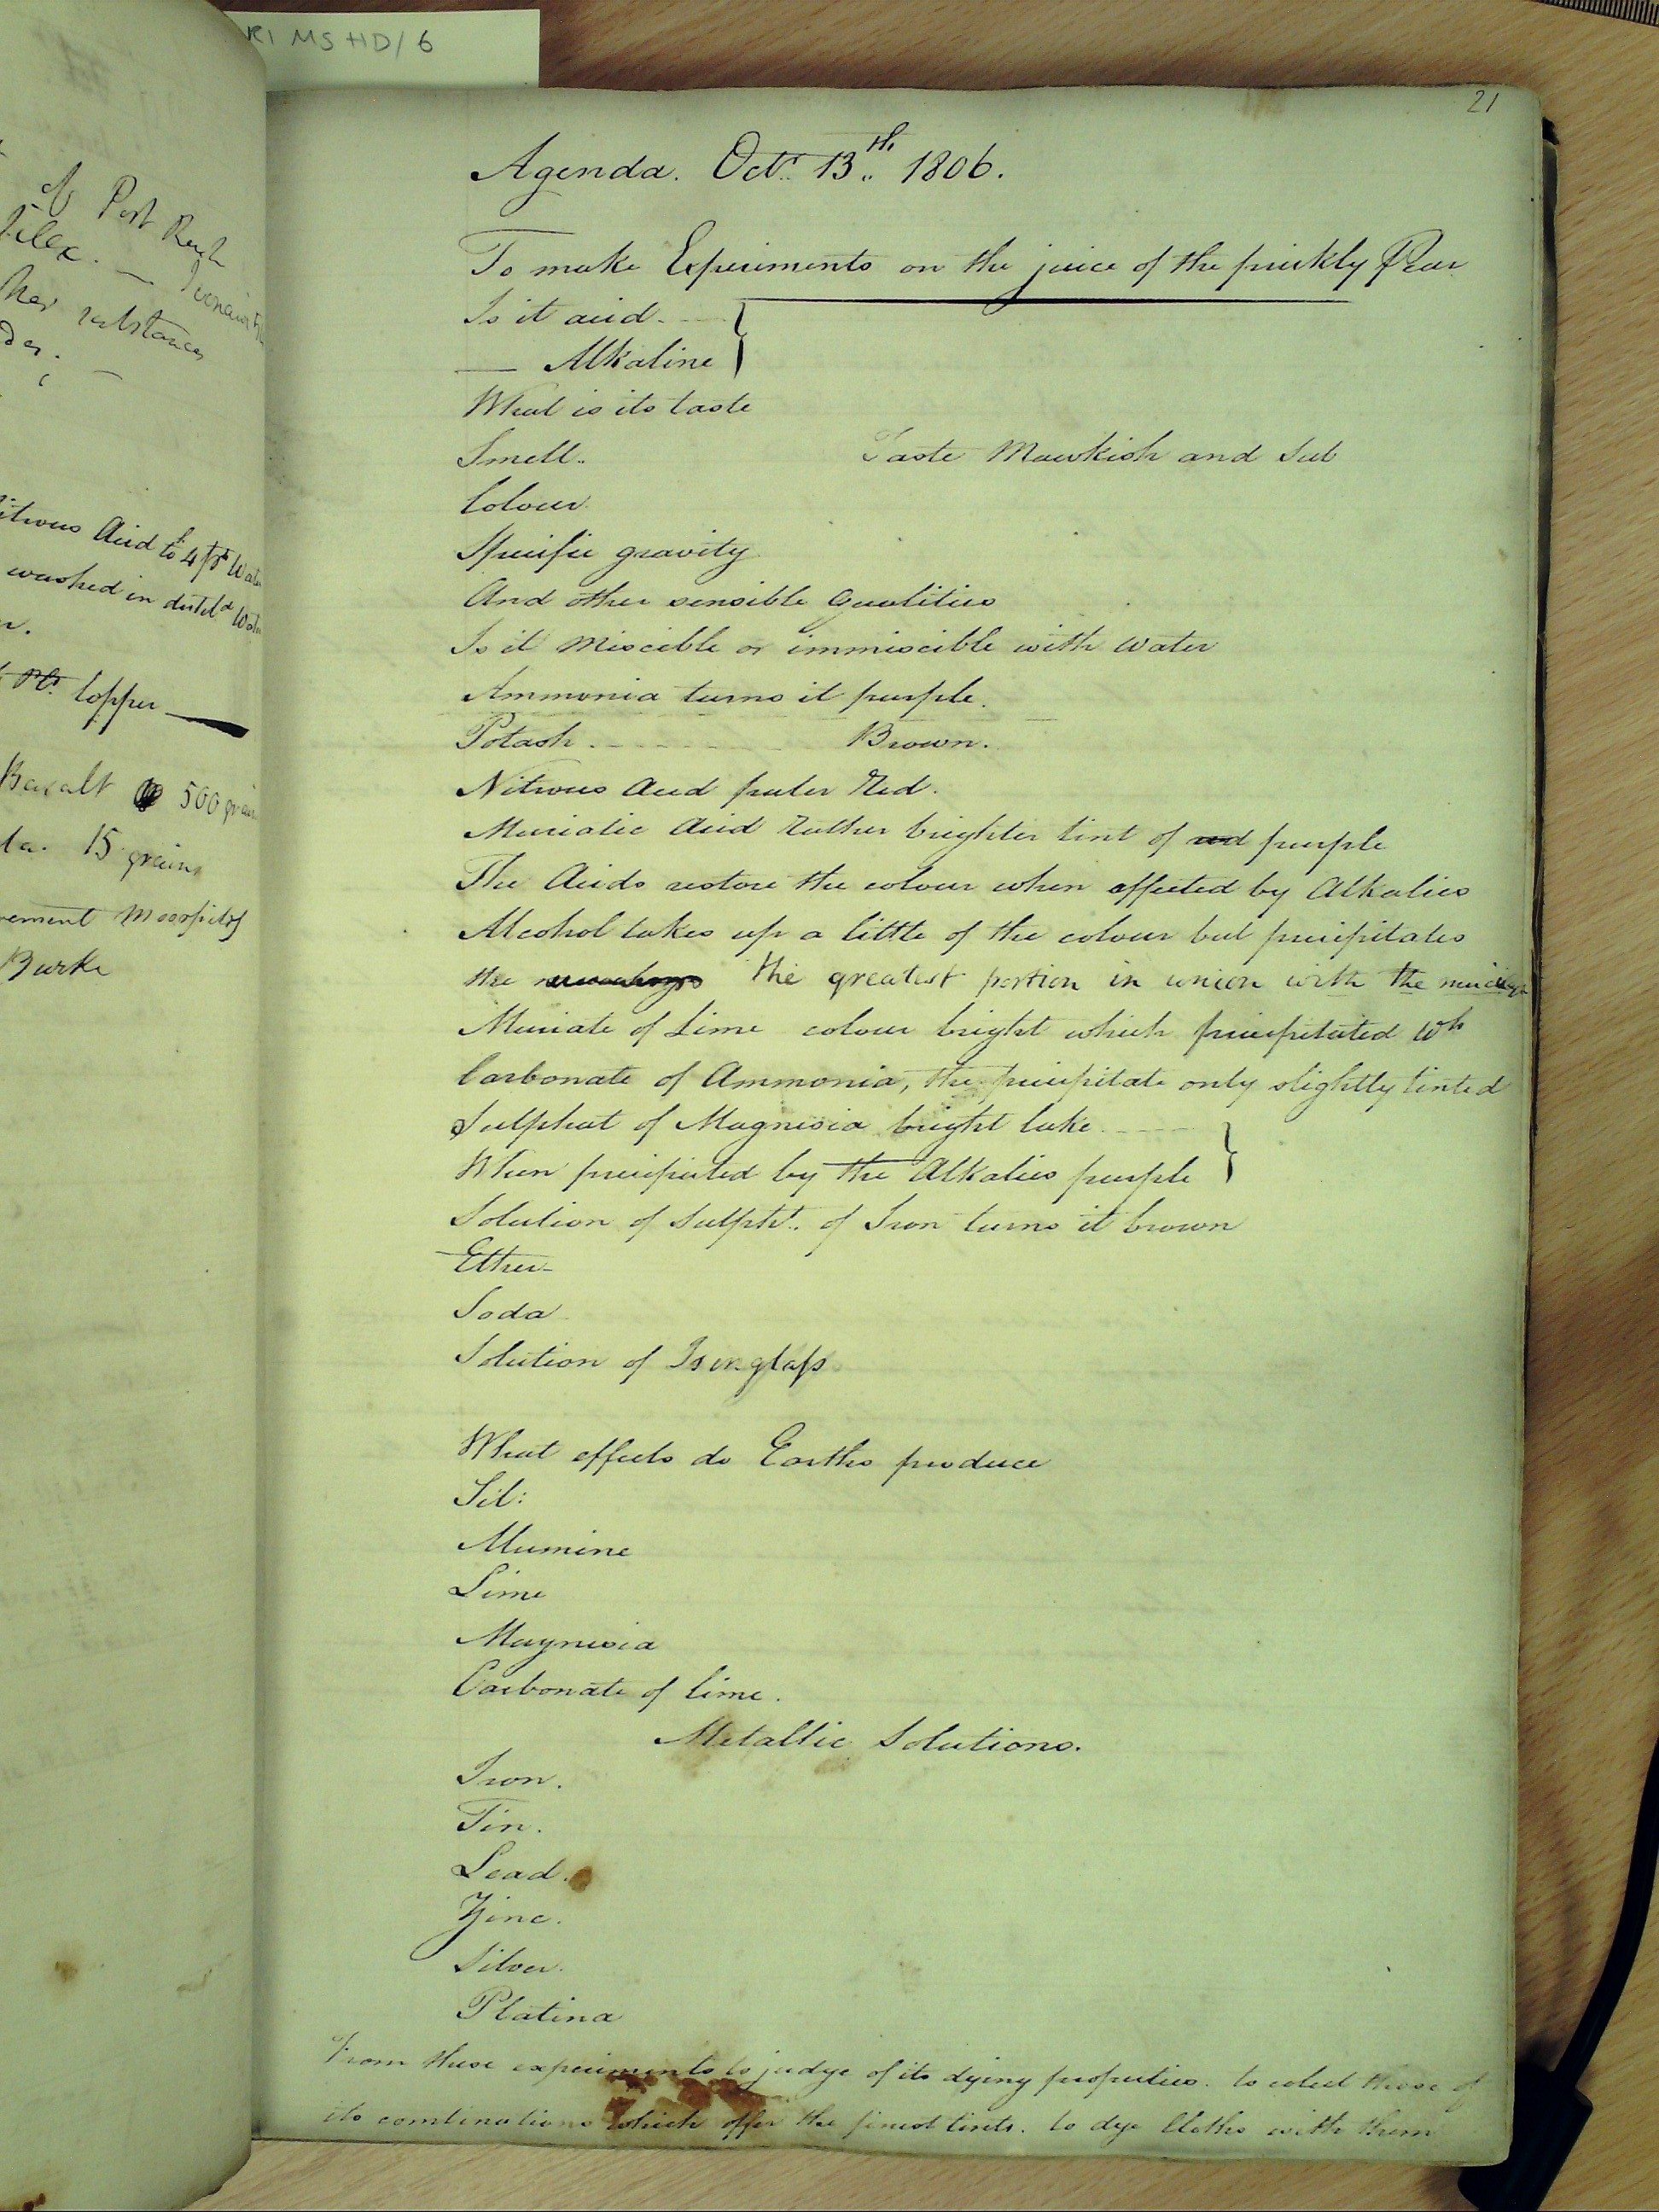 RI MS HD/6
of Port Rush
Silex. —
substances
Nitrous Acid to 4 pts Wate
washed in distd Wate
Copper
Basalt 500 grain
15 grains
Burke
21
Agenda. Octr. 13th. 1806.
To make Experiments on the juice of the prickly Pear
Is it acid - - -
— Alkaline
What is its taste
Smell. Taste Mawkish and Sub
Colour
Specific gravity
And other sensible Qualities
Is it Miscible or immiscible with Water
Ammonia turns it purple.
Potash . - - - - - Brown.
Nitrous Acid paler Red.
Muriatic Acid Rather brighter tint of red purple
The Acids restore the colour when affected by Alkalies
Alcohol takes up a little of the colour but precipitates
the the greatest portion in union with the mucilage
Muriate of Lime colour bright which precipitated wh
Carbonate of Ammonia, the precipitate only slightly tinted
Sulphat of Magnisia bright lake - - - -
When precipited by the Alkalies purple
Solution of Sulpht. of Iron turns it brown
Ether-
Soda
Solution of Isinglass
What effects do Earths produce
Sil:
Alumine
Lime
Magnisia
Carbonate of lime.
Metallic Solutions.
Iron.
Tin.
Lead.
Zinc.
Silver.
Platina
From these experiments to judge of its dying properties. to select those of
its combinations which offer the finest tints. to dye Cloths with them